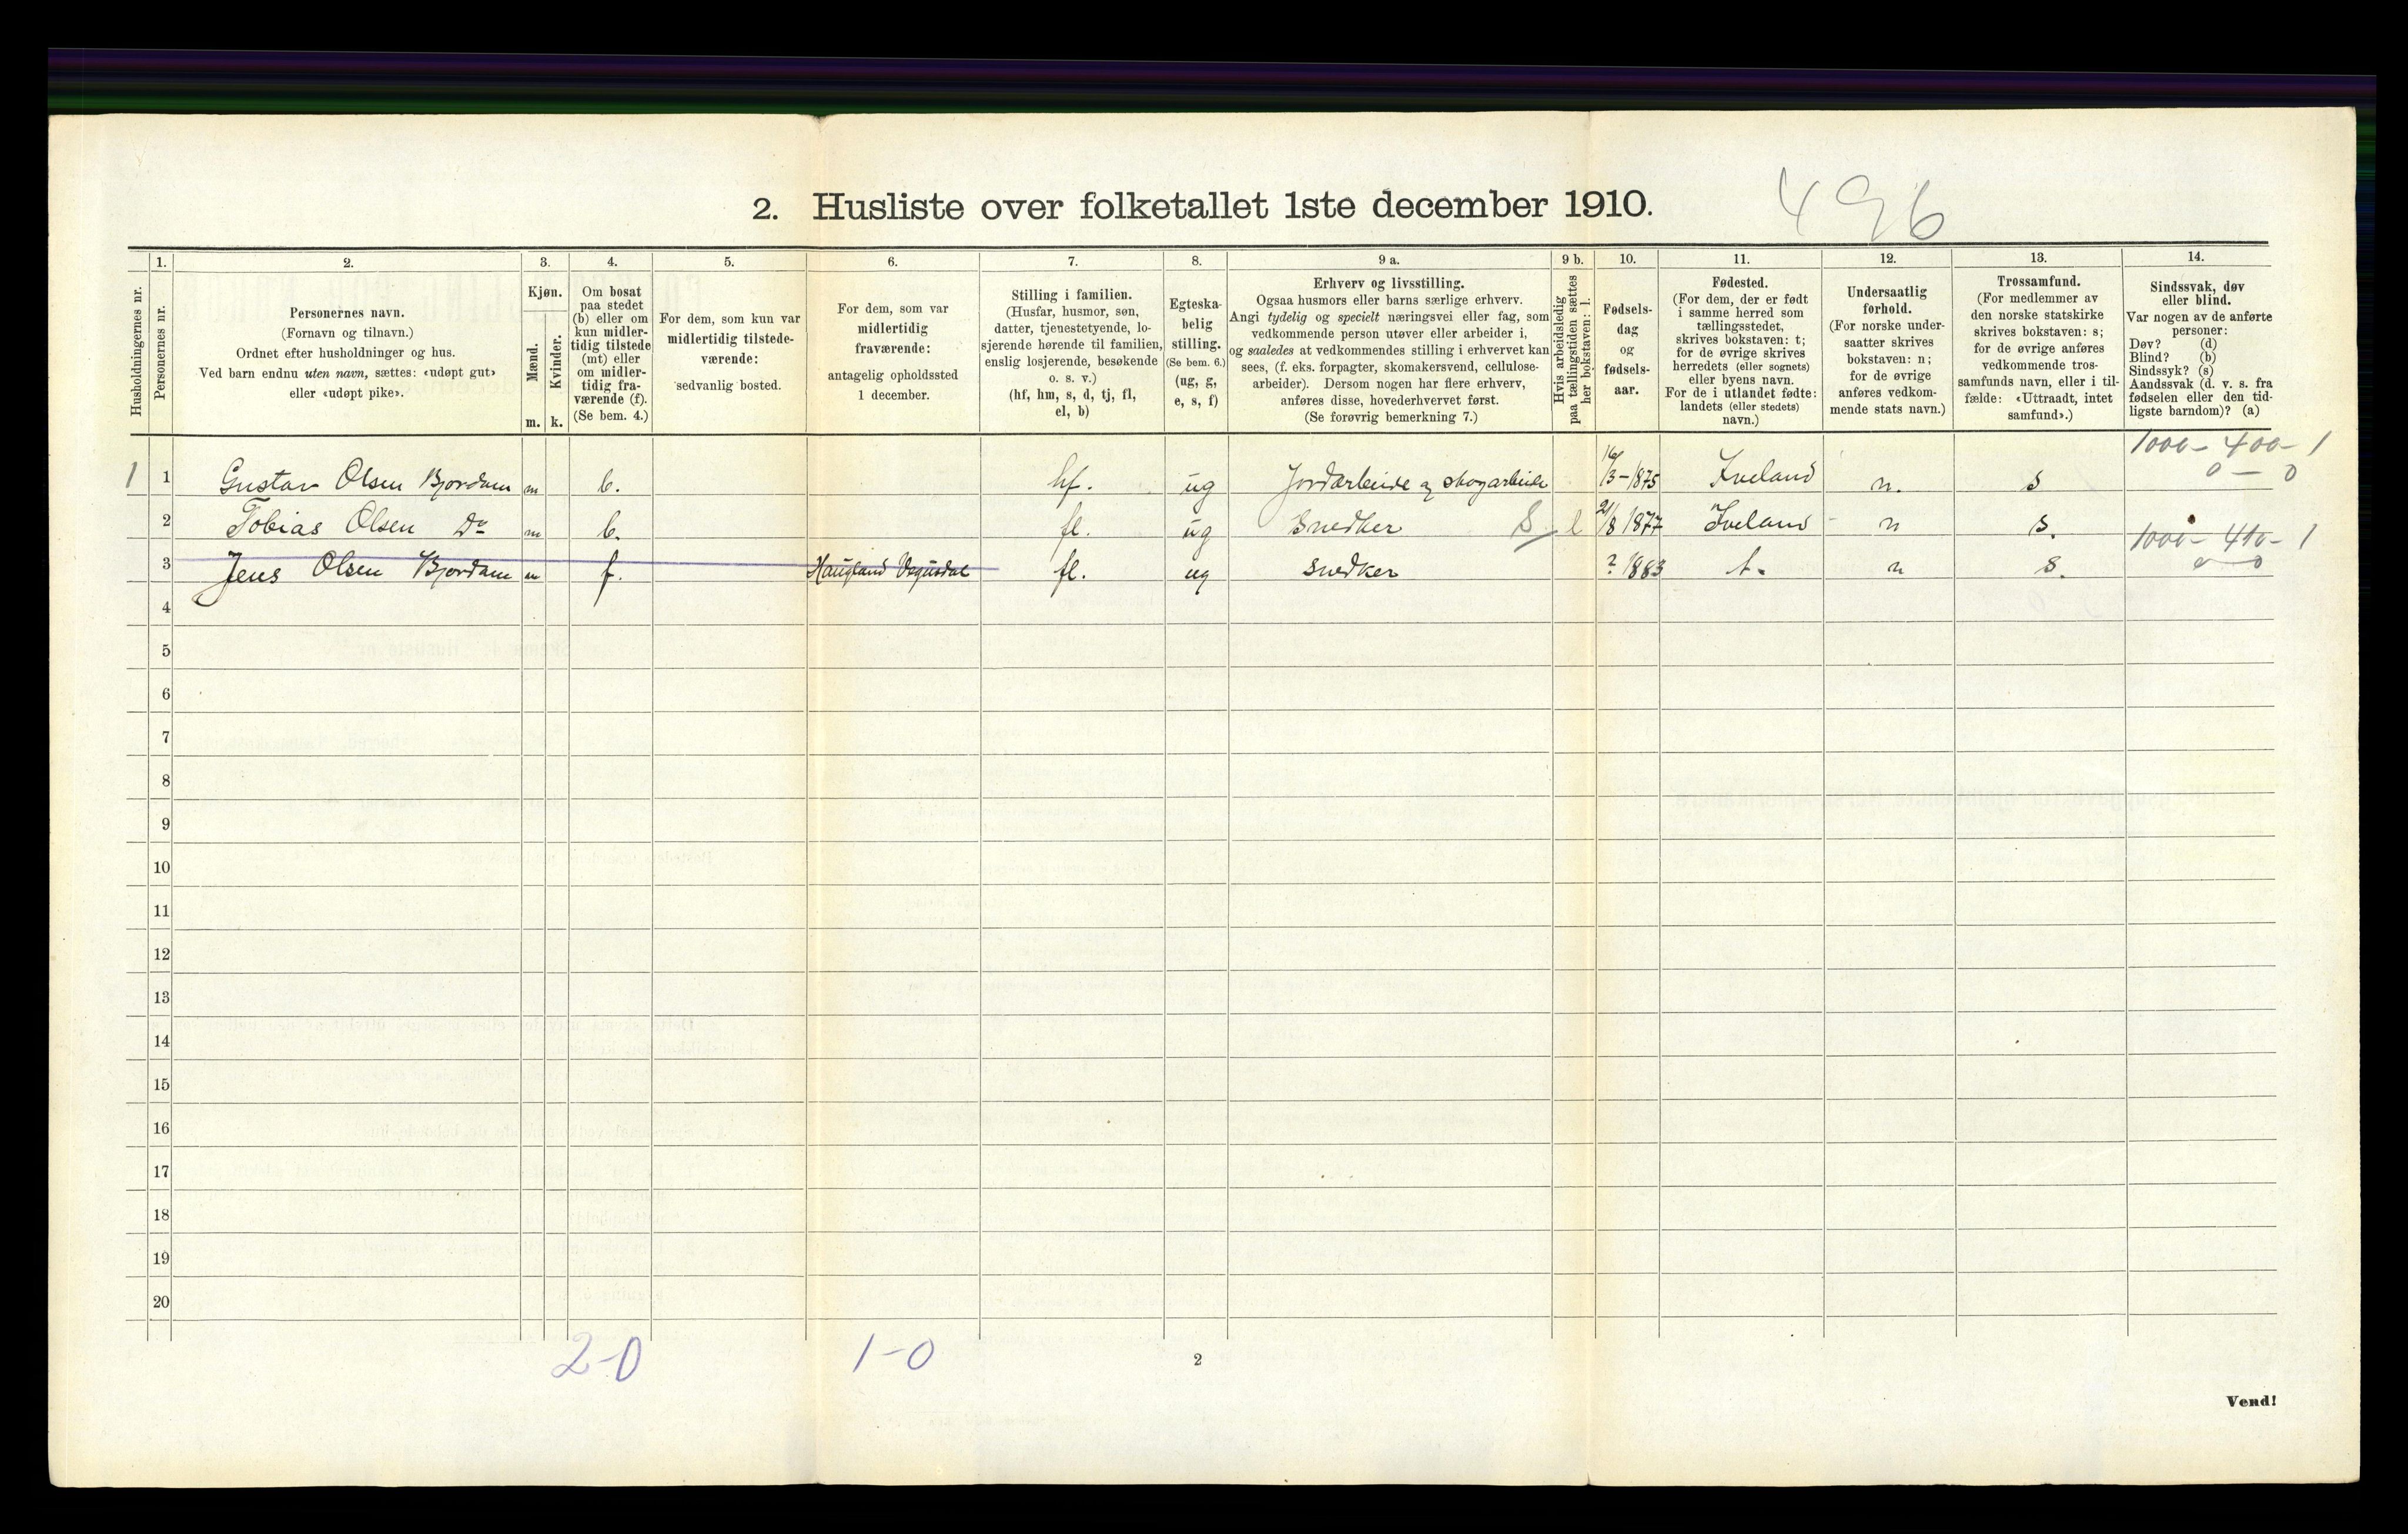 2. Husliste over folketallet 1ste december 1910.
496
Husholdningernes nr.
1.
Personernes nr.
2.
Personernes navn.
(Fornavn og tilnavn.)
Ordnet efter husholdninger og hus.
Ved barn endnu uten navn, sættes: «udøpt gut»
eller «udøpt pike».
3.
Kjøn.
Mænd.
Kvinder.
m. k.
4.
Om bosat
paa stedet
(b) eller om
kun midler-
tidig tilstede
(mt) eller
om midler-
tidig fra-
værende (f).
(Se bem. 4.)
5.
For dem, som kun var
midlertidig tilstede-
værende:
sedvanlig bosted.
6.
For dem, som var
midlertidig
fraværende:
antagelig opholdssted
1 december.
7.
Stilling i familien.
(Husfar, husmor, søn,
datter, tjenestetyende, lo-
sjerende hørende til familien,
enslig losjerende, besøkende
o. s. v.)
(hf, hm, s, d, tj, fl,
el, b)
8.
Egteska-
belig
stilling.
(Se bem. 6.)
(ug, g,
e, s, f)
9 a.
Erhverv og livsstilling.
Ogsaa husmors eller barns særlige erhverv.
Angi tydelig og specielt næringsvei eller fag, som
vedkommende person utøver eller arbeider i,
og saaledes at vedkommendes stilling i erhvervet kan
sees, (f. eks. forpagter, skomakersvend, cellulose-
arbeider). Dersom nogen har flere erhverv,
anføres disse, hovederhvervet først.
(Se forøvrig bemerkning 7.)
9 b.
Hvis arbeidsledig
paa tællingstiden sættes
her bokstaven: l.
10.
Fødsels-
dag
og
fødsels-
aar.
11.
Fødested.
(For dem, der er født
i samme herred som
tællingsstedet,
skrives bokstaven: t;
for de øvrige skrives
herredets (eller sognets)
eller byens navn.
For de i utlandet fødte:
landets (eller stedets)
navn.)
12.
Undersaatlig
forhold.
(For norske under-
saatter skrives
bokstaven: n;
for de øvrige
anføres vedkom-
mende stats navn.)
13.
Trossamfund.
(For medlemmer av
den norske statskirke
skrives bokstaven: s;
for de øvrige anføres
vedkommende tros-
samfunds navn, eller i til-
fælde: «Uttraadt, intet
samfund».)
14.
Sindssvak, døv
eller blind.
Var nogen av de anførte
personer:
Døv? (d)
Blind? (b)
Sindssyk? (s)
Aandssvak (d. v. s. fra
fødselen eller den tid-
ligste barndom)? (a)
1000 - 400 - 1
0 - 0
1 1 Gustav Olsen Bjordam m b. hf. ug Jordarbeide og skogarbeide 16/3-1875 Iveland n. s
2 Tobias Olsen Do m b. fl. ug Snedker S l 21/8 1877 Iveland - n s.
1000 - 410 - 1
0 - 0
3 Jens Olsen Bjordam m f. Haugland Vegusdal fl. ug snedker ? 1883 t. n s.
4
5
6
7
8
9
10
11
12
13
14
15
16
17
18
19
20
2-0 1-0
2
Vend!